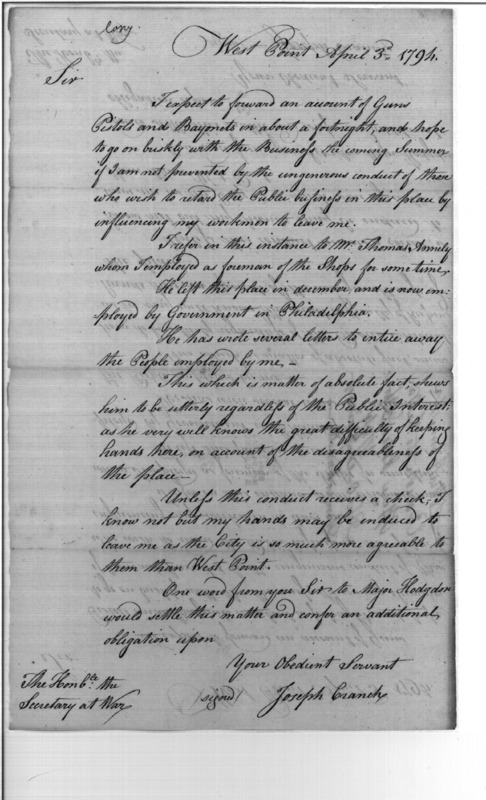 Copy.
West Point April 3d 1794.
Sir
I expect to forward an account of Guns
Pistols and Bayonets in about a fortnight, and hope
to go on briskly with the Business the coming Summer
if I am not prevented by the ungenerous conduct of those
who wish to retard the Public business in this place by
influencing my workmen to leave me.
I refer in this instance to Mr. Thomas Annely
whom I employed as foreman of the Shops for some time,
He left this place in december, and is now em-
ployed by Government in Philadelphia.
He has wrote several letters to entice away
the People employed by me, –
This which is matter of absolute fact, shews
him to be utterly regardless of the Public Interest:
as he very well knows the great difficulty of keeping
hands here, on account of the disagreeableness of
the place –
Unless this conduct receives a check, I
know not but my hands may be induced to
leave me as the City is so much more agreeable to
them than West Point.
One word from you Sir to Major Hodgdon
would settle this matter and confer an additional
obligation upon
Your Obedient Servant
(signed) Joseph Cranch
The Honble. the
Secretary at War